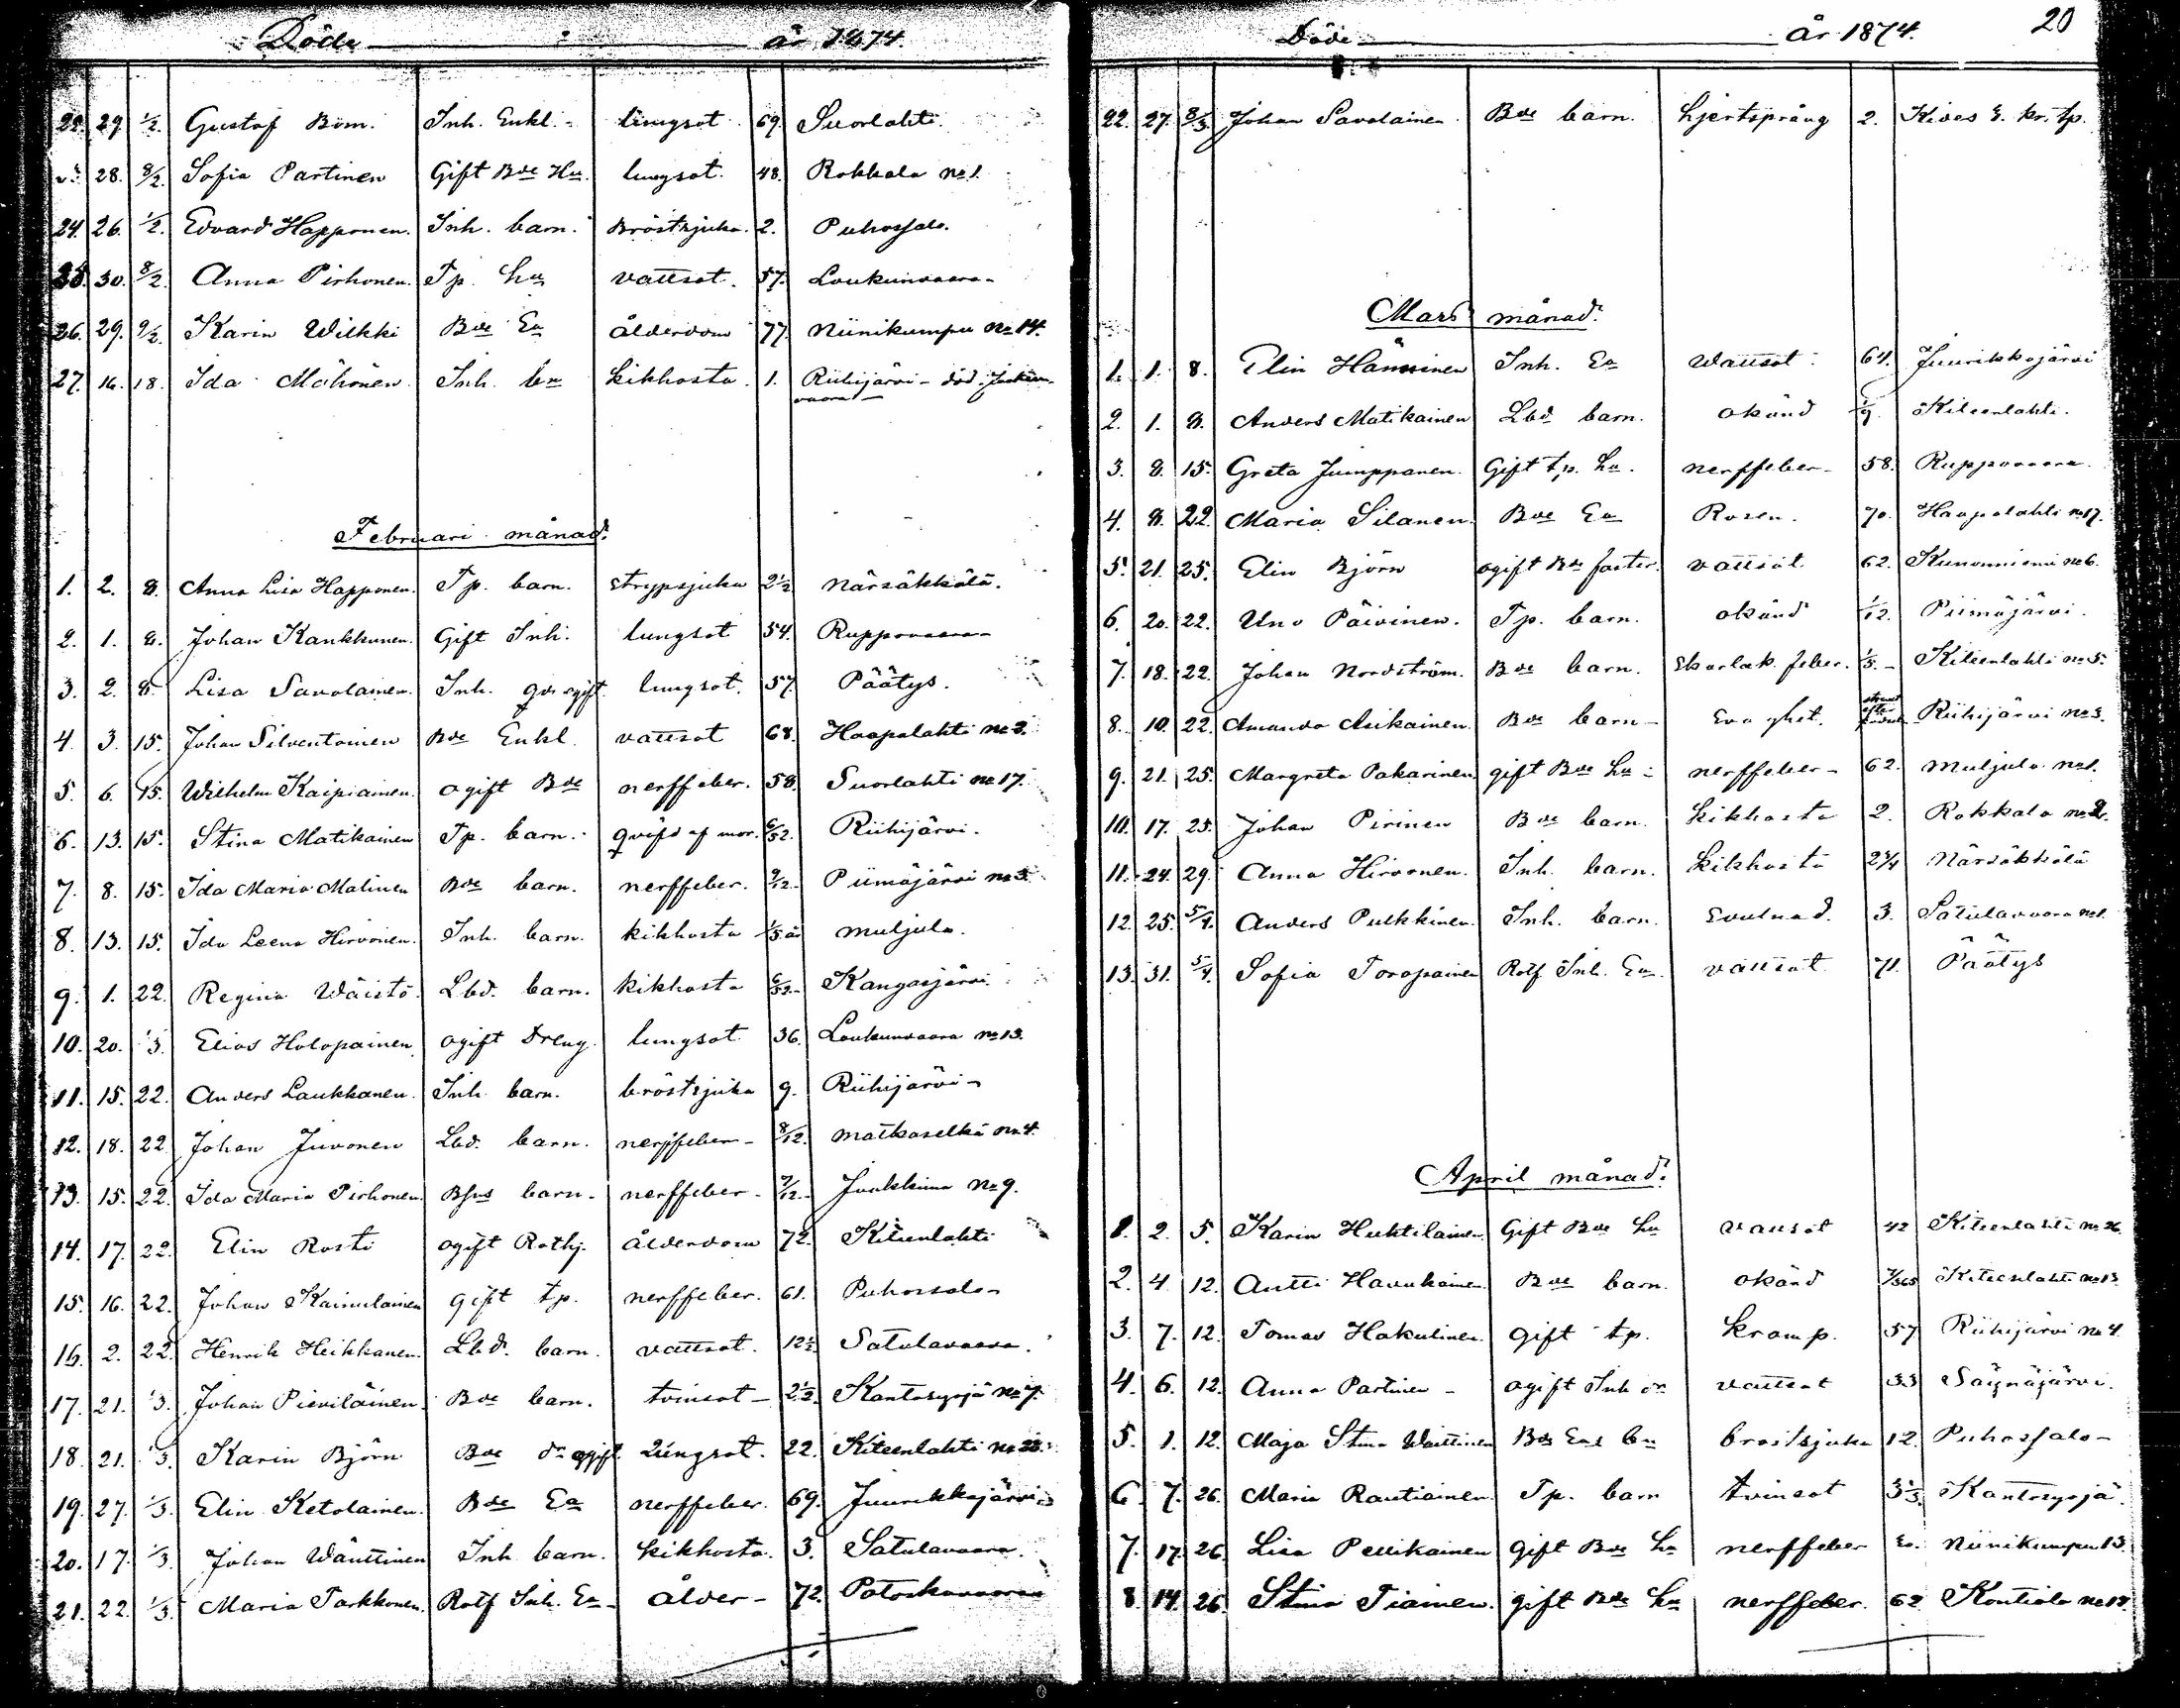 Döde år 1874.
29. 1/2. Gustaf Bom. Inh. Enkl. lungsot 69. Suorlahti.
28. 8/2. Sofia Partinen Gift Bde Hu. lungsot. 48. Rokkala no 1.
24. 26. 1/2. Edvard Happonen. Inh. barn. Bröstsjuka. 2. Puhossalo.
25. 30. 8/2. Anna Pirhonen. Tp. hu vattsot. 57. Loukunvaara
26. 29. 9/2. Karin Wilkki Bde Ea ålderdom 77. Niinikumpu no 14.
27. 16. 18. Ida Möhönen Inh. bn kikhosta. 1. Riihijärvi - död
Februari månad.
1. 2. 8. Anna Lisa Happonen. Tp. barn. Strypsjuka 2 1/2 Närsäkkälä.
2. 1. 8. Johan Kankkunen. Gift Inh. lungsot 54. Ruppovaara
3. 2. 8. Lisa Savolainen. Inh. ogift lungsot. 57. Päätys.
4. 3. 15. Johan Silventoinen Bde Enkl. vattsot 68. Haapalahti no 3.
5. 6. 15. Wilhelm Kaipiainen. ogift Bde nerffeber. 58. Suorlahti no 17.
6. 13. 15. Stina Matikainen Tp. barn. qväfd af mor. 6/52. Riihijärvi.
7. 8. 15. Ida Maria Malinen Bde barn. nerffeber. 9/12. Piimäjärvi no 3.
8. 13. 15. Ida Leena Hirvonen. Inh. barn. kikhosta 1/3 år Muljula.
9. 1. 22. Regina Wäistö. Lbd. barn. kikhosta 6/52. Kangasjärvi.
10. 20. 1/3. Elias Holopainen ogift Dreng. lungsot 36. Loukunvaara no 13.
11. 15. 22. Anders Laukkanen. Inh. barn. bröstsjuka 9. Riihijärvi
12. 18. 22 Johan Juvonen Lbd. barn. nerffeber 8/12. Matkaselkä no 4.
13. 15. 22. Ida Maria Pirhonen. Bfvs barn nerffeber 7/12. Juukkima No 9.
14. 17. 22. Elin Rosti ogift Rothj. ålderdom 72. Kiteenlahti
15. 16. 22. Johan Kainulainen gift tp. nerffeber. 61. Puhossalo
16. 2. 22. Henrik Heikkanen. Lbd. barn. vattsot. 12 1/2 Satulavaara.
17. 21. 1/3. Johan Pieviläinen. Bde barn. tvinsot 2 1/2. Kantosyrjä no 7.
18. 21. 1/3. Karin Björn Bde dr ogift lungsot. 22. Kiteenlahti no 28.
19. 27. 1/3. Elin Ketolainen. Bde Ea nerffeber. 69. Juurikkajärvi
20. 17. 1/3. Johan Wänttinen Inh. barn. kikhosta. 3. Satulavaara.
21. 22. 1/3. Maria Tarkkonen. Rotf Inh. Ea ålder 72. Potoskavaara
Döde år 1874. 20
22. 27. 8/3. Johan Savolainen Bde barn. hjertsprång 2. Kides
Mars månad.
1. 1. 8. Elin Hänninen Inh. Ea Wattsot 64. Juurikkajärvi
2. 1. 8. Anders Matikainen Lbd barn. okänd Kiteenlahti.
3. 8. 15. Greta Jumppanen. Gift tp. hu. nerffeber 58. Ruppovaara
4. 8. 22. Maria Silanen. Bde Ea Rosen. 70. Haapalahti no 17.
5. 21. 25. Elin Björn ogift Bde faster. vattsot 62. Kunonniemi no 6.
6. 20. 22. Uno Päivinen. Tp. barn. okänd 1/12. Piimäjärvi.
7. 18. 22. Johan Nordström. Bde barn. Skarlak. feber. 1/3. Kiteenlahti no 5.
8. 10. 22. Amanda Asikainen. Bde barn Svaghet. strax efter Riihijärvi no 3.
9. 21. 25. Margreta Pakarinen gift Bde hu nerffeber 62. Muljula no 1.
10. 17. 25. Johan Pirinen Bde barn. kikhosta 2. Rokkala no 2.
11. 24. 29. Anna Hirvonen. Inh. barn. kikhosta 2 1/4 Närsäkkälä
12. 25. 5/4. Anders Pulkkinen. Inh. barn. Svulnad. 3. Satulavaara no 1.
13. 31. 5/4. Sofia Toropainen Rotf Inh. Ea. vattsot 71. Päätys
April månad.
1. 2. 5. Karin Huhtilainen Gift Bde hu vattsot 42 Kiteenlahti no 26.
2. 4. 12. Antti Havukainen Bde barn. okänd 7/365 Kiteenlahti no 13.
3. 7. 12. Tomas Hakulinen. gift tp. kramp. 57 Riihijärvi no 4.
4. 6. 12. Anna Partinen ogift Inh dr vattsot 33 Säynäjärvi.
5. 1. 12. Maja Stina Wänttinen Bds Eas bn bröstsjuka 12. Puhossalo
6. 7. 26. Maria Rautiainen. Tp. barn tvinsot 3 1/3. Kantosyrjä.
7. 17. 26. Lisa Pellikainen gift Bde hu nerffeber Niinikumpu 13.
8. 14. 26. Stina Tiainen. gift Bde hu nerffeber. 62. Kontiola no 18.